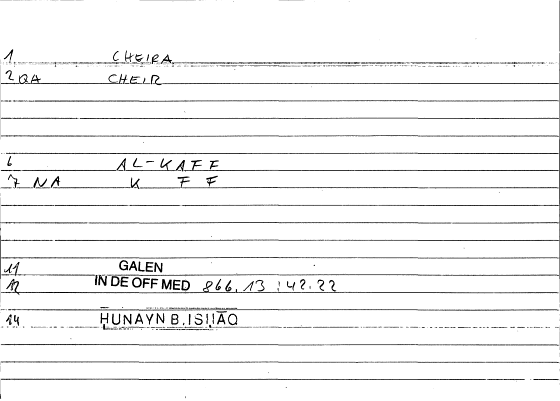 1 CHEIRA
2 QA CHEIR
6 AL-KAFF
7 NA K FF
11 GALEN
12 IN DE OFF MED 866,13 : 42.22
14 HUNAYN B. ISḤĀQ